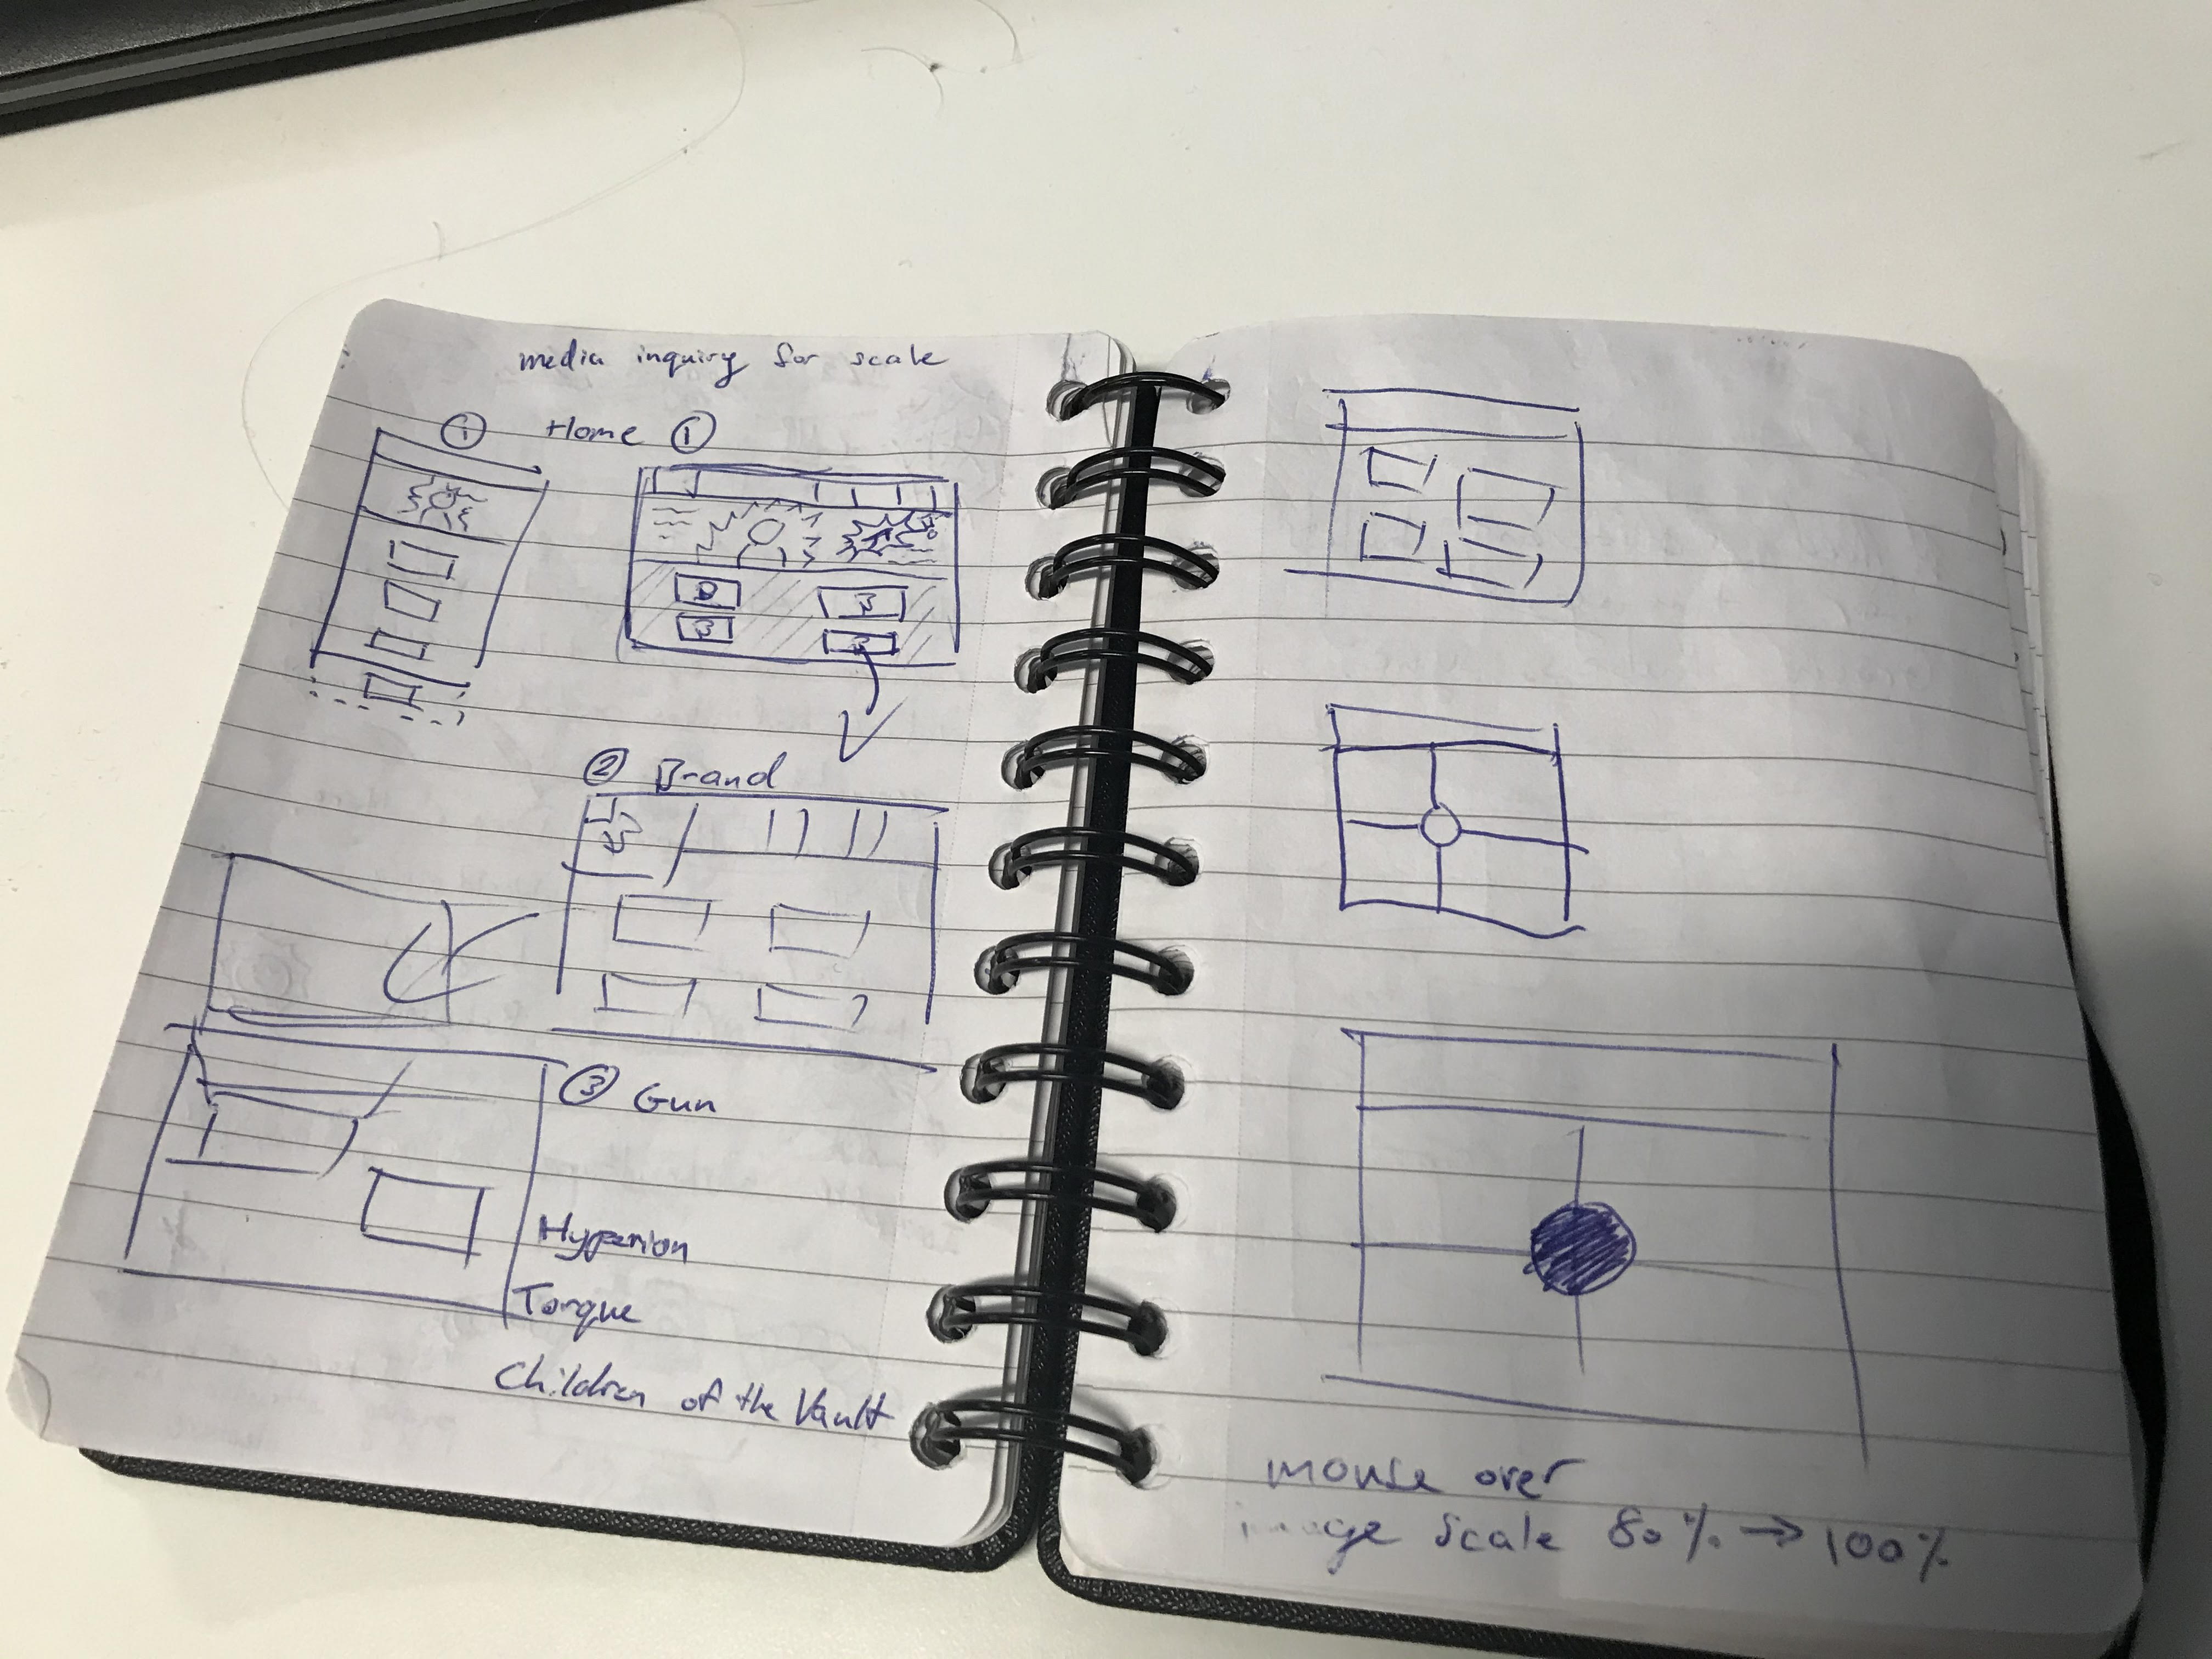 media inquiry for scale
① Home ①
B
B
B
B
② Brand
③ Gun
Hyperion
Torque
Children of the Vault
mouse over
image scale 80% → 100%